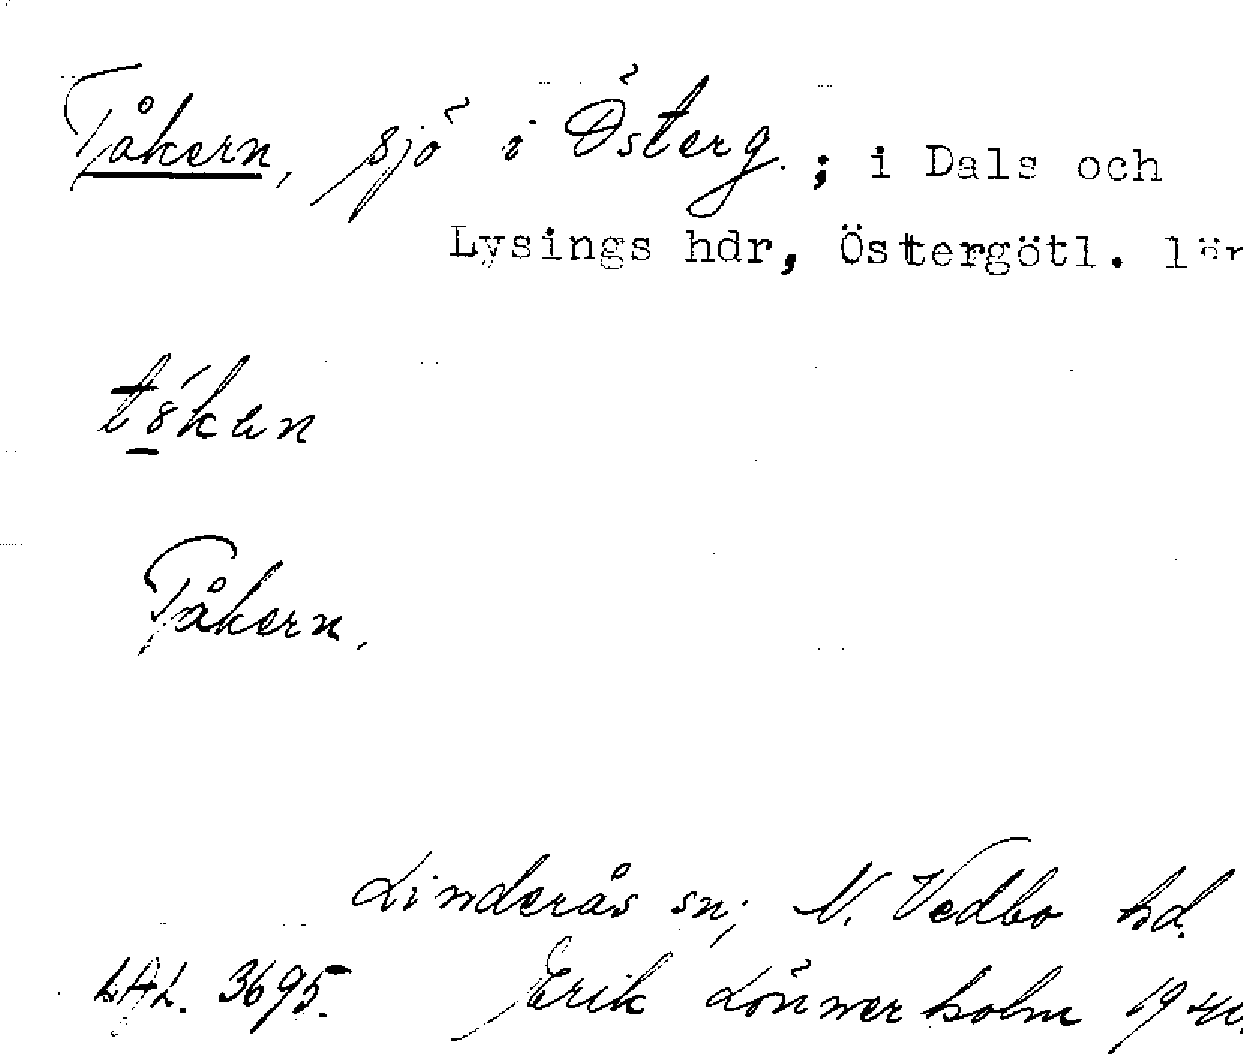 Tåkern, sjö i Österg. ; i Dals och
Lysings hdr, Östergötl. län
Tåkern.
Linderås sn; N. Vedbo hd.
LAL. 3695. Erik Lönnerholm 1940.